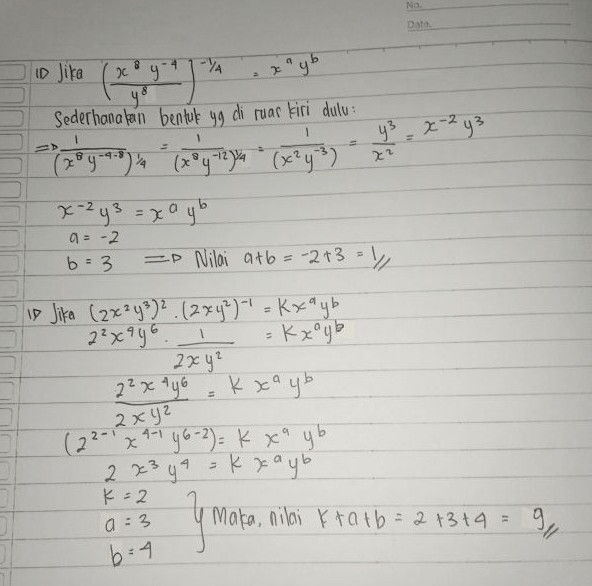 No.
Date.
1) Jika (x⁸ y⁻⁴ / y⁸)^(-1/4) = xᵃ yᵇ
Sederhanakan bentuk yg di ruas kiri dulu:
=> 1/(x⁸ y⁻⁴⁻⁸)^(1/4) = 1/(x⁸ y⁻¹²)^(1/4) = 1/(x² y⁻³) = y³/x² = x⁻² y³
x⁻² y³ = xᵃ yᵇ
a = -2
b = 3 => Nilai a+b = -2+3 = 1//
1) Jika (2x²y³)² . (2xy²)⁻¹ = Kxᵃyᵇ
2²x⁴y⁶ . 1/(2xy²) = Kxᵃyᵇ
2²x⁴y⁶ / 2xy² = K xᵃ yᵇ
(2²⁻¹ x⁴⁻¹ y⁶⁻²) = K xᵃ yᵇ
2 x³ y⁴ = K xᵃ yᵇ
K = 2
a = 3 } Maka, nilai K+a+b = 2+3+4 = 9//
b = 4